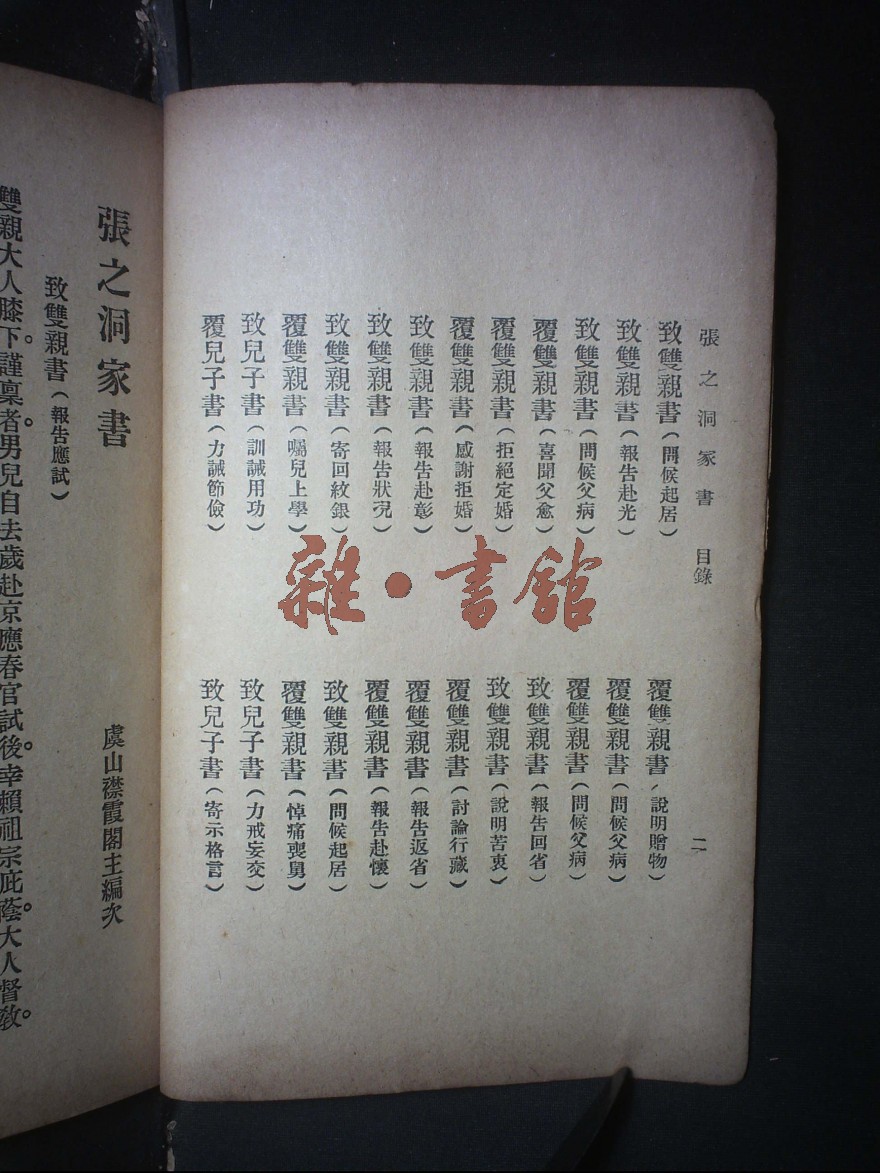 張之洞家書 目錄 二
致雙親書（問候起居）
致雙親書（報告赴光）
致雙親書（問候父病）
覆雙親書（喜聞父愈）
覆雙親書（拒絕定婚）
覆雙親書（感謝拒婚）
致雙親書（報告赴彰）
致雙親書（報告狀況）
致雙親書（寄回紋銀）
覆雙親書（囑兒上學）
致兒子書（訓誡用功）
覆兒子書（力誡節儉）
覆雙親書（說明贈物）
覆雙親書（問候父病）
覆雙親書（問候父病）
致雙親書（報告回省）
致雙親書（說明苦衷）
覆雙親書（討論行藏）
覆雙親書（報告返省）
覆雙親書（報告赴懷）
致雙親書（問候起居）
覆雙親書（悼痛喪舅）
致兒子書（力戒妄交）
致兒子書（寄示格言）
雜·書館
張之洞家書
虞山襟霞閣主編次
致雙親書（報告應試）
雙親大人膝下。謹稟者。男兒自去歲赴京應春官試後。幸賴祖宗庇蔭。大人督教。